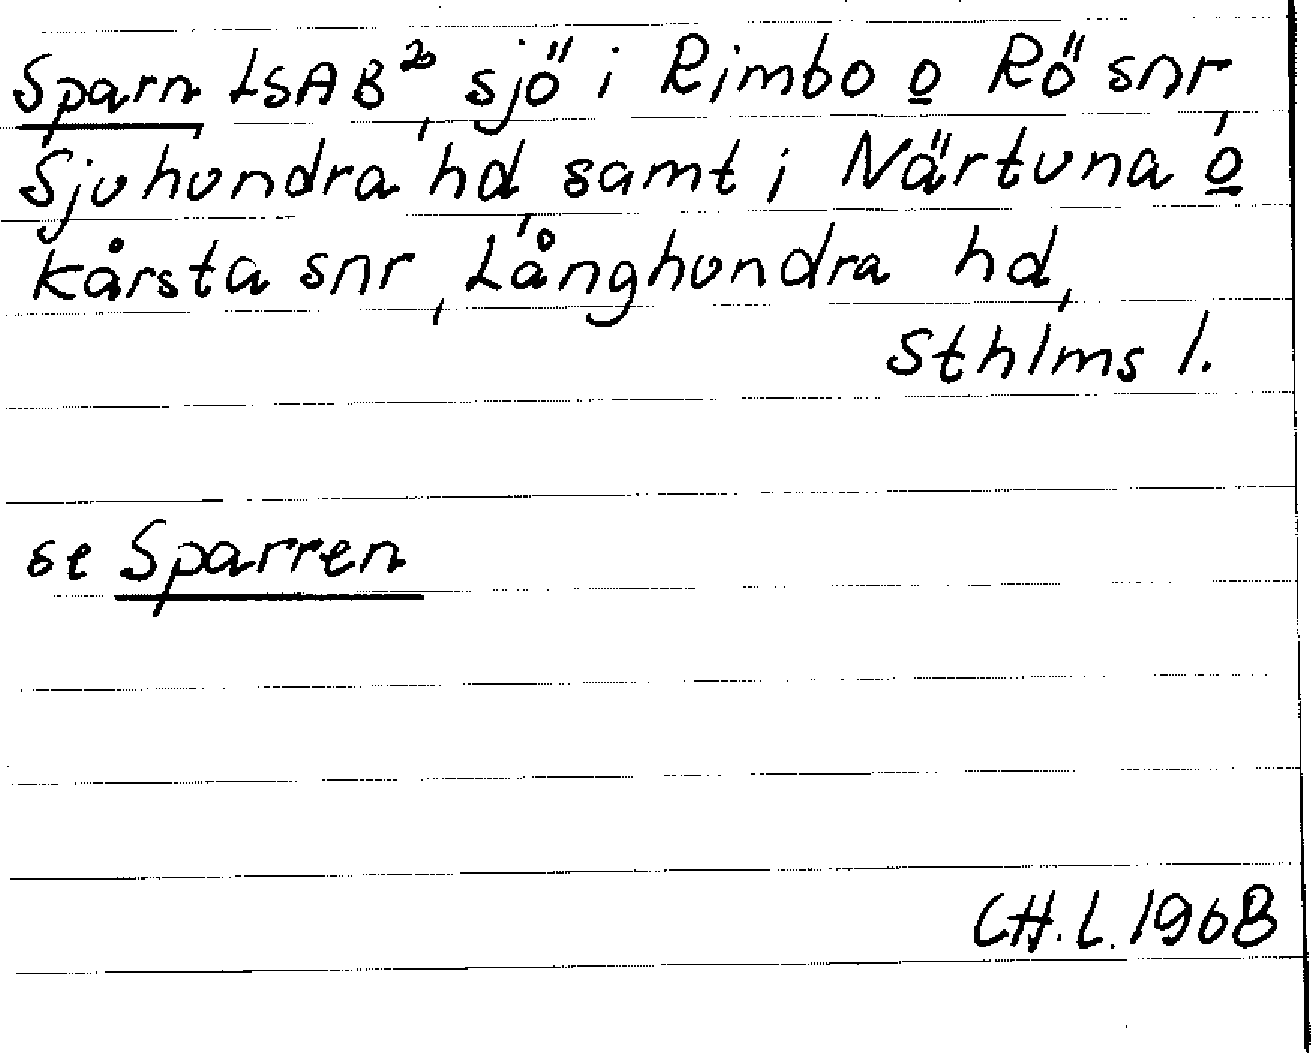 Sparn LSAB²⁰, sjö i Rimbo o Rö snr,
Sjuhundra hd, samt i Närtuna o
Kårsta snr, Långhundra hd,
Sthlms l.
se Sparren
CH.L. 1968